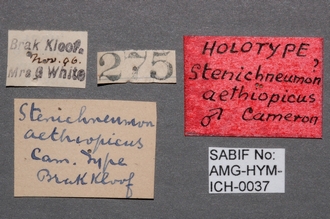 Brak Kloof.
Nov. 96.
Mrs G White
275
HOLOTYPE,
Stenichneumon
aethiopicus
♂ Cameron
Stenichneumon
aethiopicus
Cam. Type
Brak Kloof
SABIF No:
AMG-HYM-
ICH-0037